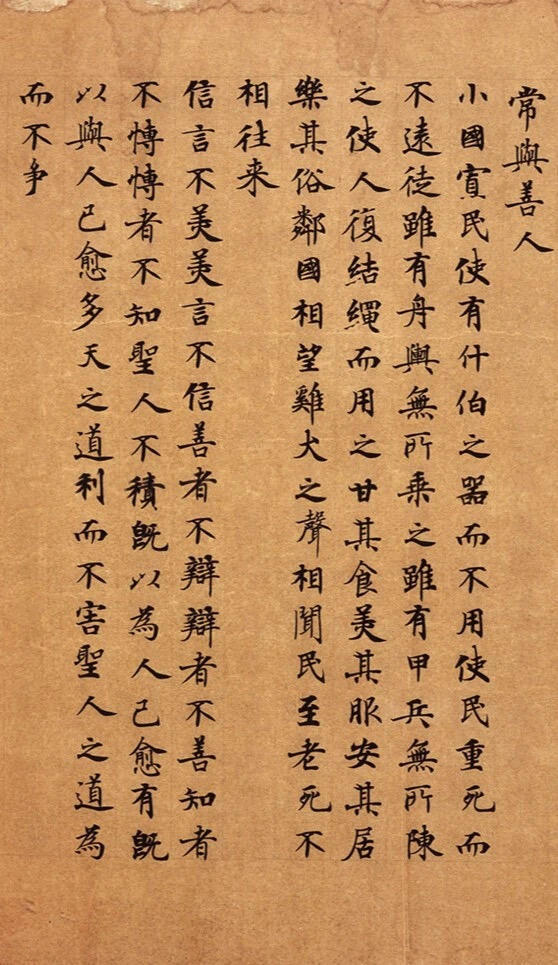 常與善人
小國寡民使有什伯之器而不用使民重死而
不遠徙雖有舟輿無所乗之雖有甲兵無所陳
之使人復結繩而用之甘其食美其服安其居
樂其俗鄰國相望雞犬之聲相聞民至老死不
相往来
信言不美美言不信善者不辯辯者不善知者
不博博者不知聖人不積既以為人己愈有既
以與人己愈多天之道利而不害聖人之道為
而不争